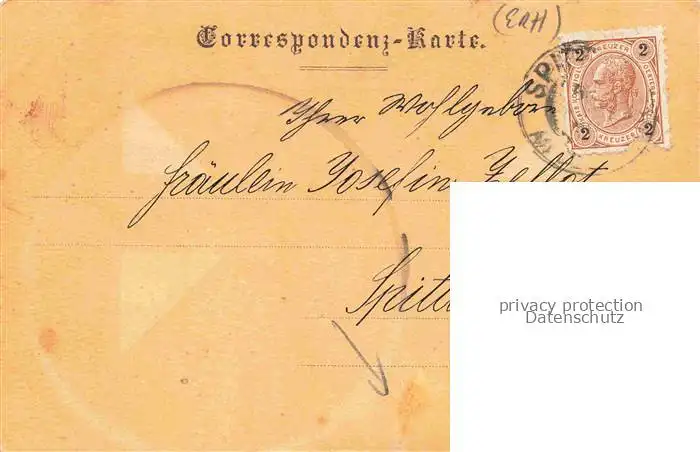 (ERH)
Correspondenz-Karte.
2 KREUZER 2
SPIT
2 KREUZER 2
Ihrer Wohlgeboren
Fräulein Josefin Zellot
Spittal
privacy protection
Datenschutz